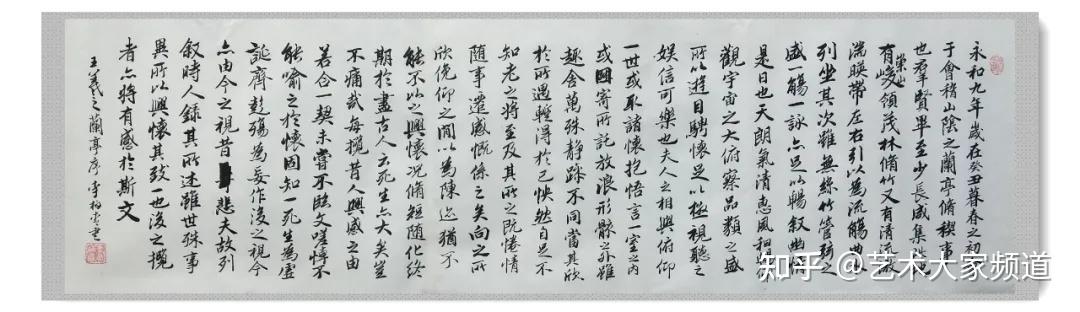 永和九年歲在癸丑暮春之初
于會稽山陰之蘭亭脩稧事
也羣賢畢至少長咸集此
有崇山峻領茂林脩竹又有清流激
湍暎帶左右引以為流觴曲
列坐其次雖無絲竹管弦之
盛一觴一詠亦足以暢敘幽情
是日也天朗氣清惠風和暢
觀宇宙之大俯察品類之盛
所以遊目騁懷足以極視聽之
娛信可樂也夫人之相與俯仰
一世或取諸懷抱悟言一室之內
或因寄所託放浪形骸之外雖
趣舍萬殊静躁不同當其欣
於所遇輕得於己怏然自足不
知老之將至及其所之既惓情
隨事遷感慨係之矣向之所
欣俛仰之間以為陳迹猶不
能不以之興懷況脩短随化終
期於盡古人云死生亦大矣豈
不痛哉每攬昔人興感之由
若合一契未嘗不臨文嗟悼不
能喻之於懷固知一死生為虛
誕齊彭殤為妄作後之視今
亦由今之視昔悲夫故列
敘時人錄其所述雖世殊事
異所以興懷其致一也後之攬
者亦將有感於斯文
王羲之蘭亭序
知乎 @艺术大家频道